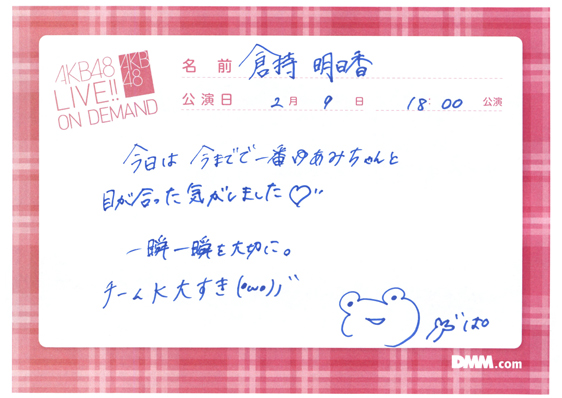 AKB48
LIVE!!
ON DEMAND
AKB
48
名前 倉持 明日香
公演日 2月 9日 18:00 公演
今日は 今までで一番ゆあみちゃんと
目が合った気がしました♡
一瞬一瞬を大切に。
チームK大すき(・ω・)ノ
DMM.com